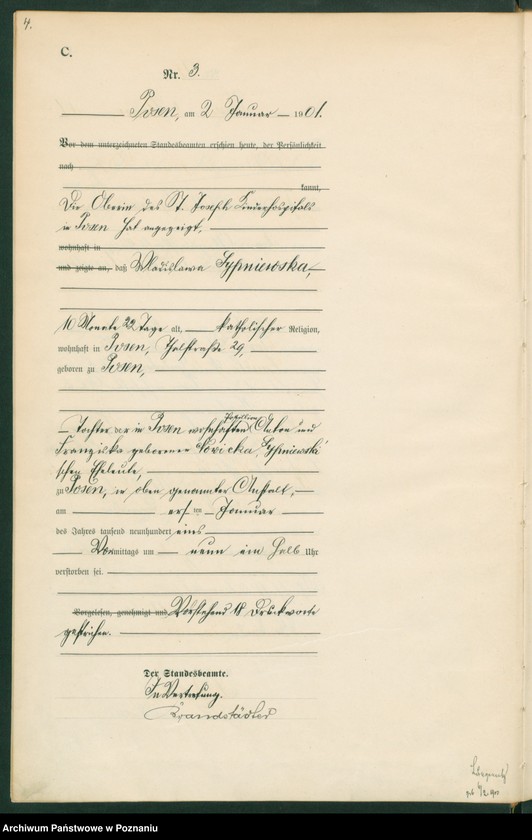 4.
C.
Nr. 3.
Posen, am 2 Januar 1901.
Vor dem unterzeichneten Standesbeamten erschien heute, der Persönlichkeit
nach
kannt,
Die Oberin des St. Josephs Kinderhospitals
in Posen hat angezeigt,
wohnhaft in
und zeigte an, daß Wladislawa Sypniewska,
10 Monate 22 Tage alt, katholischer Religion,
wohnhaft in Posen, Thalstraße 29,
geboren zu Posen,
Tochter der in Posen wohnhaften Anton und
Franziska geborener Sypniewski
schen Eheleute,
zu Posen, in oben genannter Anstalt,
am ersten Januar
des Jahres tausend neunhundert eins
Vormittags um neun ein halb Uhr
verstorben sei.
Vorgelesen, genehmigt und Vorstehend 18 Druckworte
gestrichen.
Der Standesbeamte.
In Vertretung.
Brandstädter
Archiwum Państwowe w Poznaniu